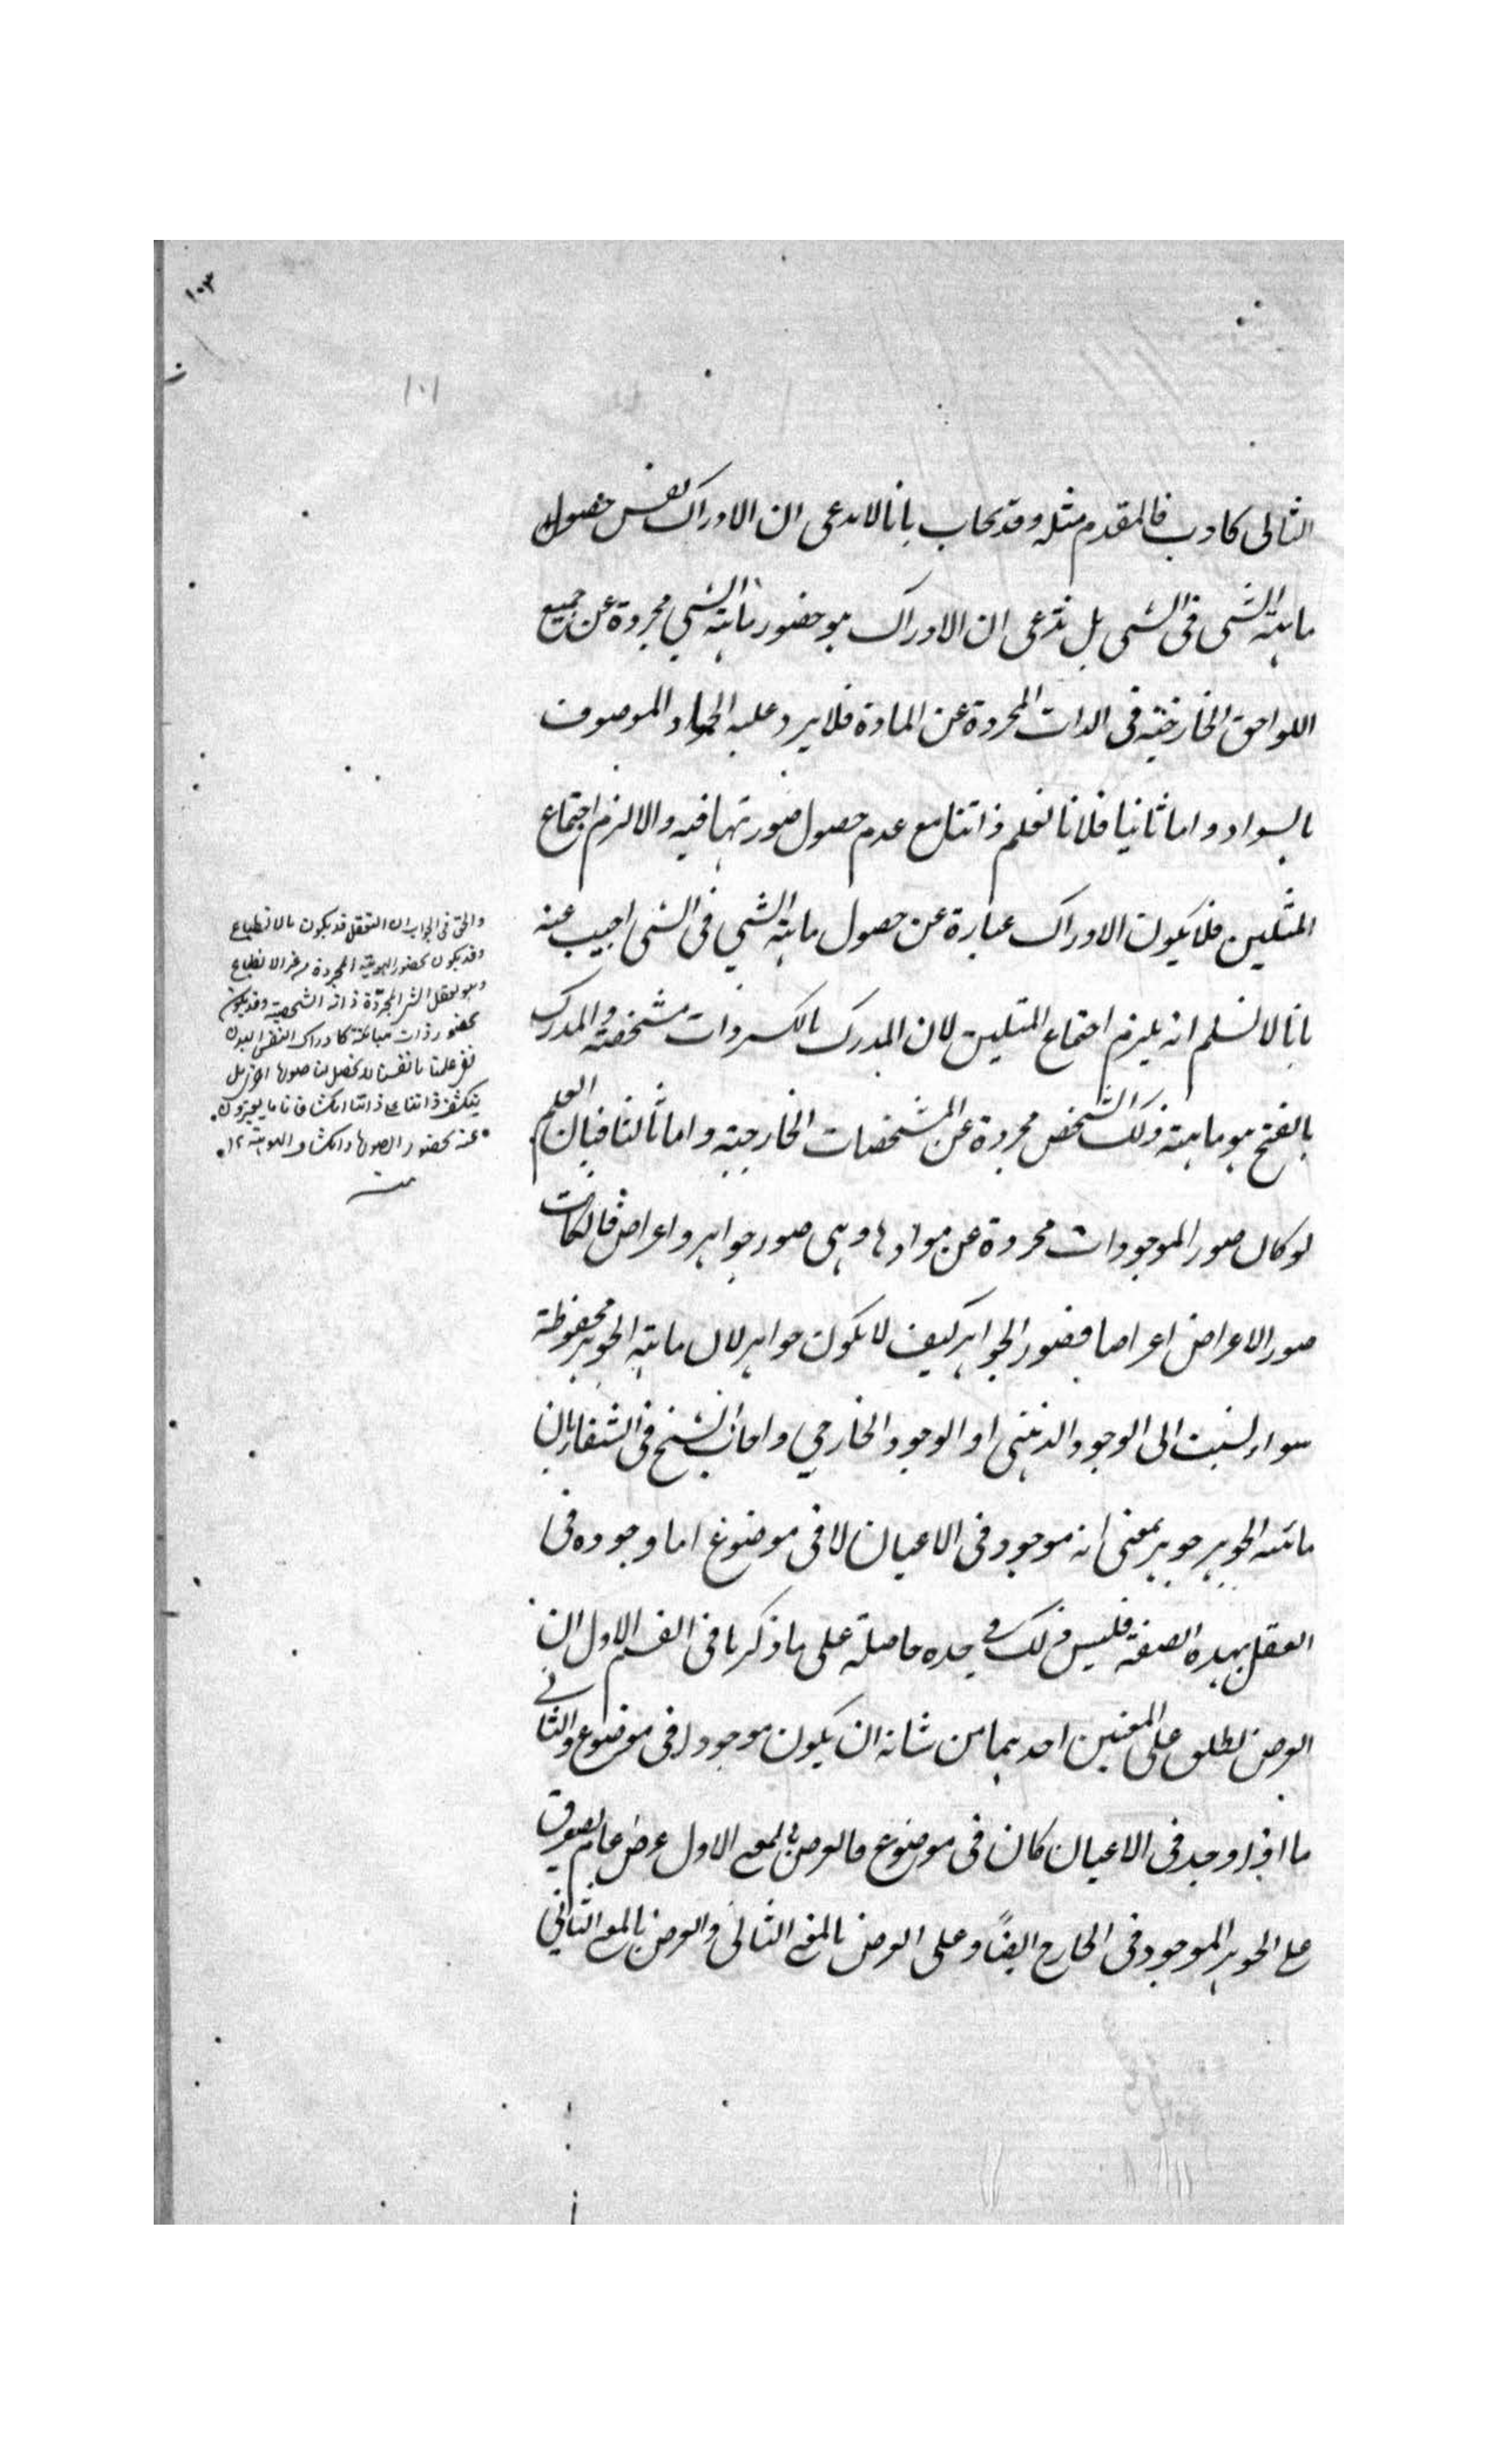 ١٠٣
١٠١
التالى كاذب فالمقدم مثله وقد يجاب بانا لا ندعى ان الادراك نفس حصول
ماهية الشى فى الشى بل ندعى ان الادراك هو حضور ماهية الشي مجردة عن جميع
اللواحق الخارجية فى الذات المجردة عن المادة فلا يرد عليه الجماد الموصوف
بالسواد واما ثانيا فلانا نعلم ذاتنا مع عدم حصول صورتها فيه والا لزم اجتماع
المثلين فلا يكون الادراك عبارة عن حصول ماهية الشي فى الشى اجيب عنه
بانا لا نسلم انه يلزم اجتماع المثلين لان المدرك بالكسر ذات مشخصة والمدرك
بالفتح هو ماهية ذلك الشخص مجردة عن المشخصات الخارجية واما ثالثا فبان العلم
لو كان صور الموجودات مجردة عن موادها وهى صور جواهر واعراض فان كانت
صور الاعراض اعراضا فصور الجواهر كيف لا يكون جواهر لان ماهية الجوهر محفوظة
سواء نسبت الى الوجود الذهنى او الوجود الخارجي واجاب الشيخ فى الشفا بان
ماهية الجوهر جوهر بمعنى انه موجود فى الاعيان لا فى موضوع اما وجوده فى
العقل بهذه الصفة فليس ذلك فى حده حاصلة على ما ذكرنا فى القسم الاول ان
العرض يطلق على المعنيين احدهما من شانه ان يكون موجودا فى موضوع والثانى
ما اذا وجد فى الاعيان كان فى موضوع فالعرض بالمعنى الاول عرض عام يصدق
على الجوهر الموجود فى الخارج ايضًا وعلى العرض بالمعنى الثانى والعرض بالمعنى الثانى
والحق فى الجواب ان التعقل قد يكون بالانطباع
وقد يكون بحضور الهوية المجردة من غير الانطباع
وهو تعقل الشى المجردة ذاته الشخصية وقد يكون
بحضور ذات مباينة كادراك النفس البدن
ففى علمنا بانفسنا لا يحصل لنا صورة اخرى بل
ينكشف ذاتنا على ذاتنا انكشافا تاما يعبرون
عنه بحضور الصورة وانكشاف الهوية ١٢
منه